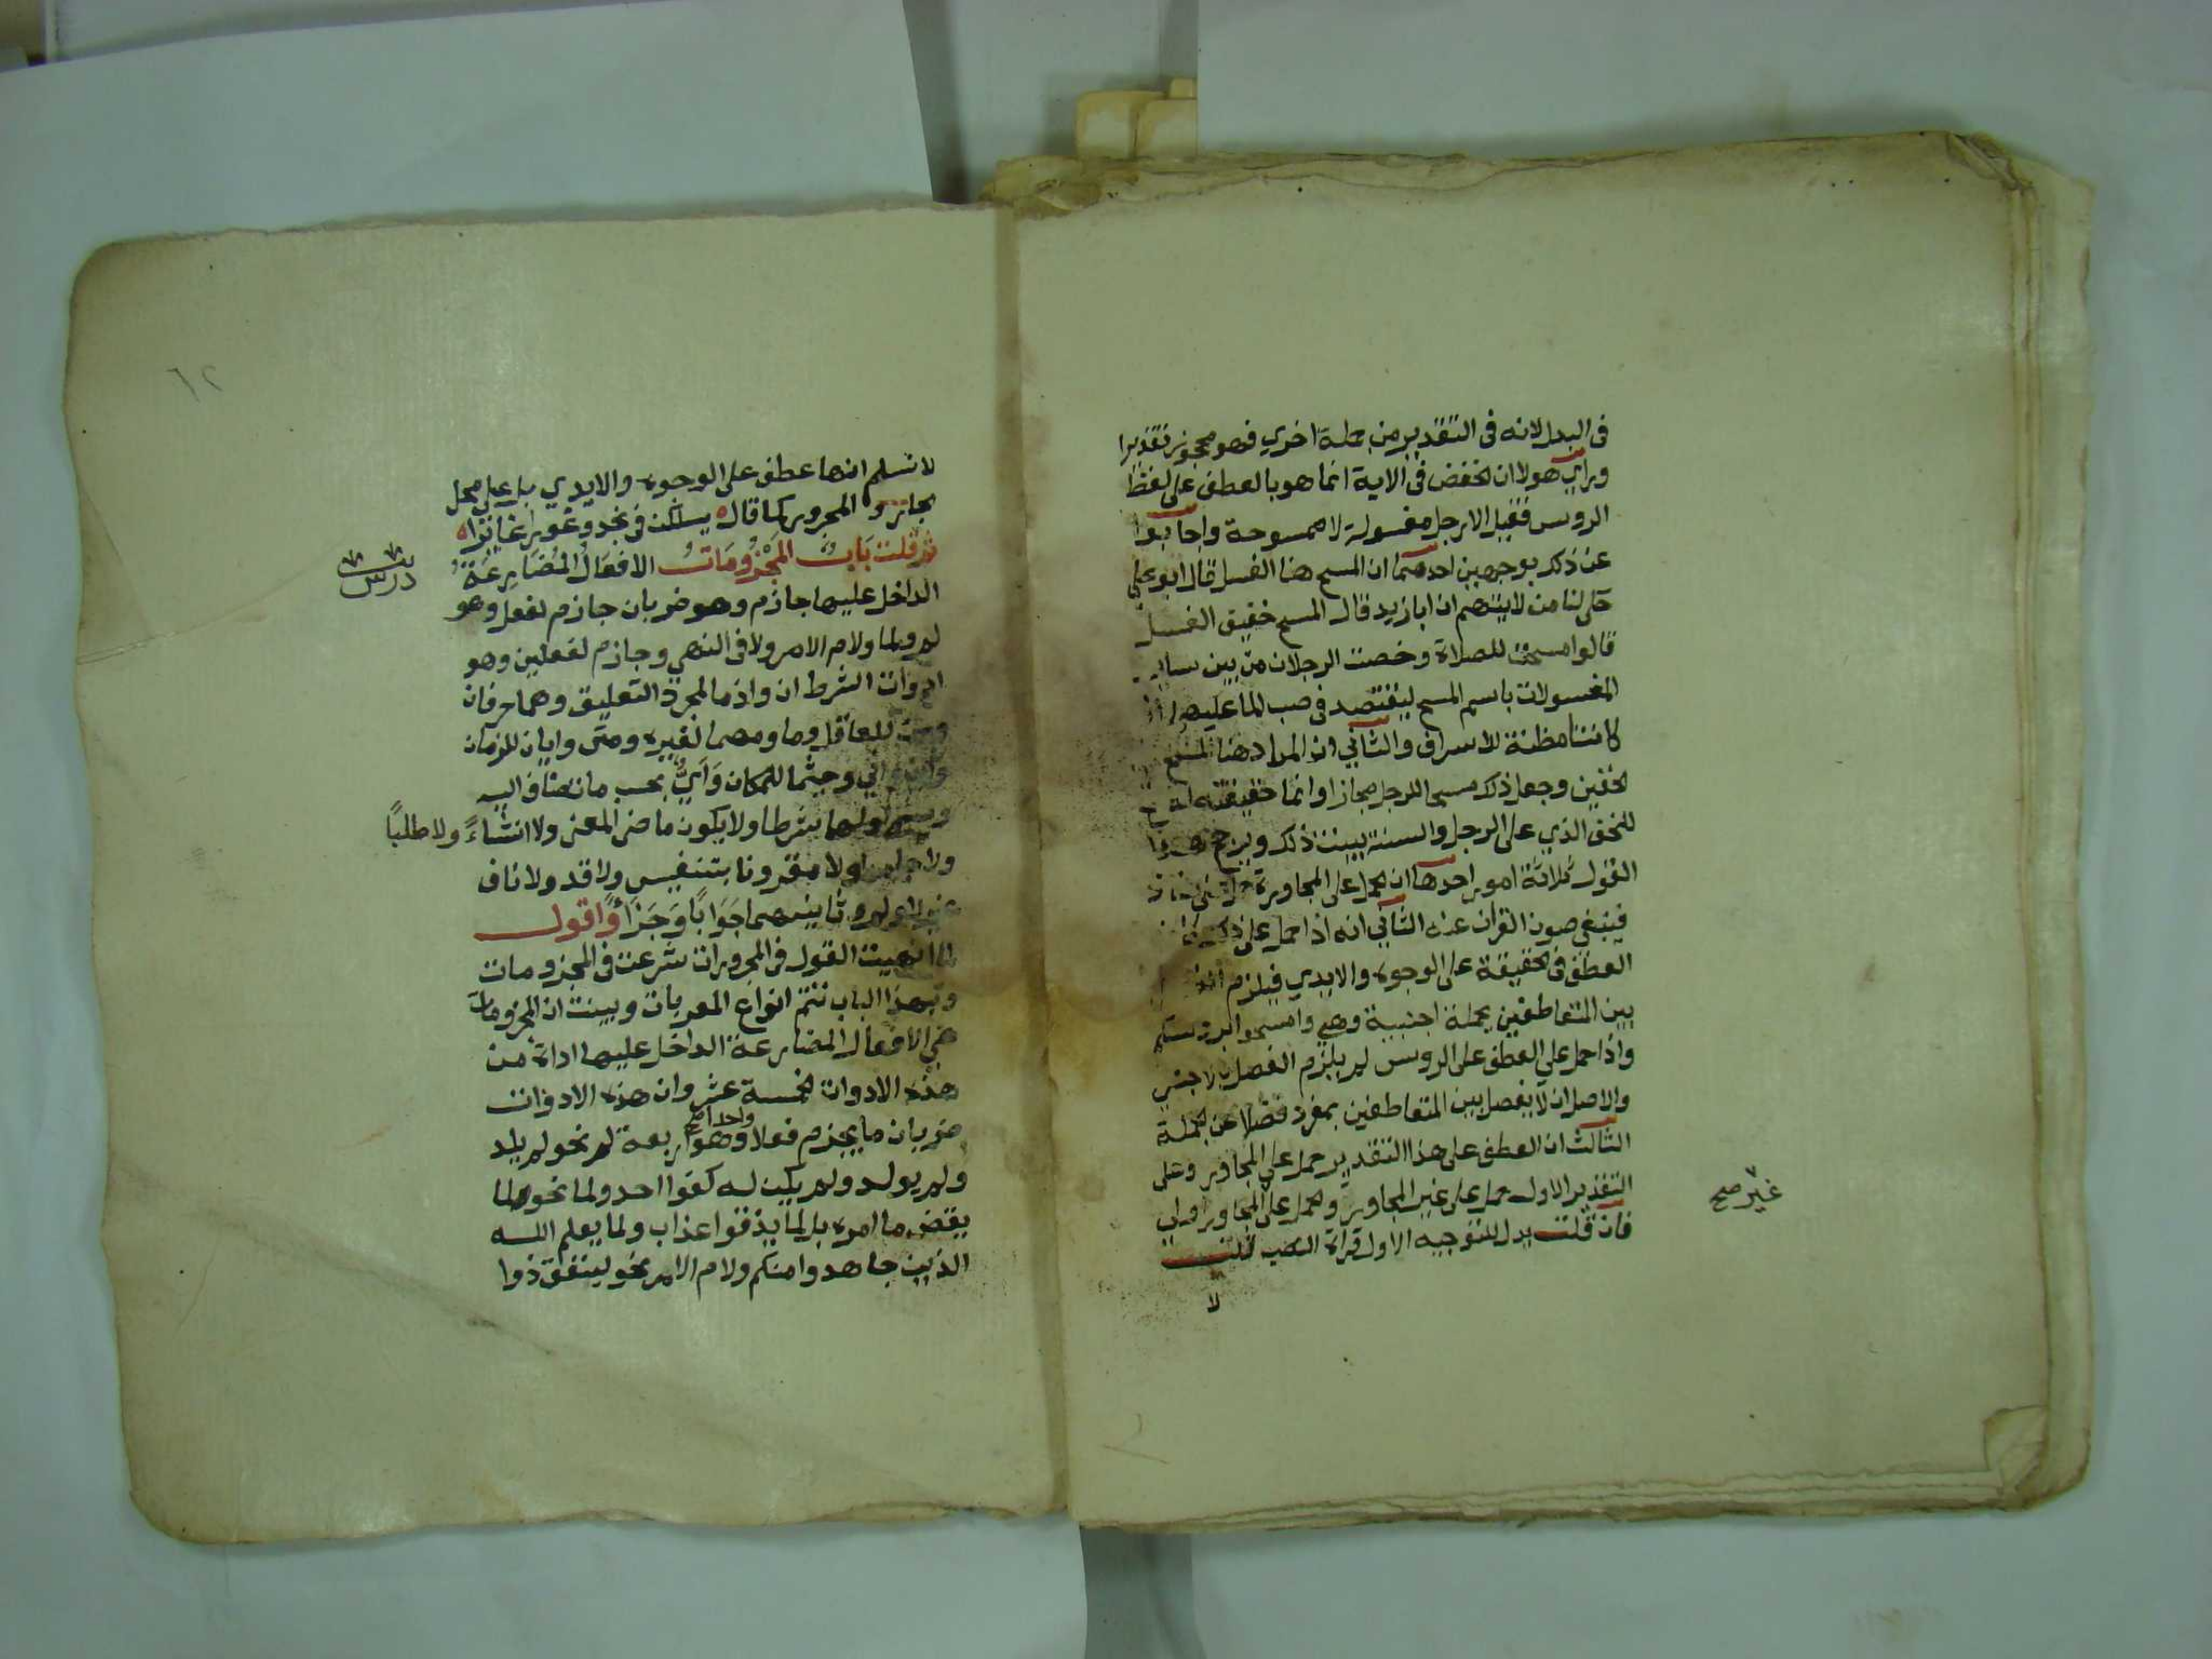 في البدل لانه في التقدير من جملة اخري فهو محجوز تقديرا
وراي هولا ان الخفض في الاية انما هو بالعطف على لفظ
الروس فقيل الارجل مغسولة لا ممسوحة واجابوا
عن ذلك بوجهين احدهما ان المسح هنا الغسل قال ابو علي
حكى لنا من لا يتهم ان ابا زيد قال المسح خفيف الغسل
قالوا مسحت للصلاة وخصت الرجلان من بين ساير
المغسولات باسم المسح ليقتصد في صب الما عليهما اذ
كانتا مظنة للاسراف والثاني ان المراد هنا المسح
الخفين وجعل ذلك مسحا للرجل مجازا وانما حقيقته انه
للخف الذي على الرجل والسنة بينت ذلك ويرجح هذا
القول ثلاثة امور احدها ان الحمل على المجاورة
فينبغي صون القران عنه الثاني انه اذا حمل على ذلك كان
العطف في الحقيقة على الوجوه والايدي فيلزم
بين المتعاطفين بجملة اجنبية وهي وامسحوا بروسكم
واذا حمل علي العطف على الروس لم يلزم الفصل بالاجنبي
والاصل ان لا يفصل بين المتعاطفين بمفرد فضلا عن الجملة
الثالث ان العطف على هذا التقدير حمل علي المجاور وعلى
التقدير الاول حمل على غير المجاور والحمل على المجاور اولي
غير صح
فان قلت يدل للتوجيه الاول قراة النصب قلت
لا
٦٢
لا نسلم انها عطف على الوجوه والايدي بل على محل
الجار والمجرور كما قال يسلكن في نجد وغورا غايرا
ثم قلت باب المجزومات الافعال المضارعة
درس
الداخل عليها جازم وهو ضربان جازم لفعل وهو
لم ولما ولام الامر ولا في النهي وجازم لفعلين وهو
ادوات الشرط ان واذما لمجرد التعليق وهما حرفان
ومن للعاقل وما ومهما لغيره ومتى وايان للزمان
واين واني وحيثما للمكان وأيٌّ بحسب ما تضاف اليه
ويسمى اولهما شرطا ولا يكون ماضي المعنى ولا انشاءً ولا طلبًا
ولا جامدا ولا مقرونا بتنفيس ولا قد ولا ناف
غير لا ولم وثانيهما جوابًا وجزاءً واقول
لما انهيت القول في المجرورات شرعت في المجزومات
وبهذا الباب تتم انواع المعربات وبينت ان المجزومات
هي الافعال المضارعة الداخل عليها اداة من
هذه الادوات الخمسة عشر وان هذه الادوات
ضربان ما يجزم فعلا واحدا وهو اربعة لم نحو لم يلد
ولم يولد ولم يكن له كفوا احد ولما نحو لما
يقض ما امره بل لما يذقوا عذاب ولما يعلم الله
الذين جاهدوا منكم ولام الامر نحو لينفق ذوا